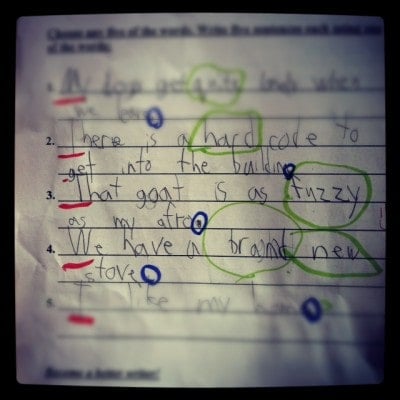 Choose any five of the words. Write five sentences each using one
of the words.
1. My dog get quite when
we
2. There is a hard code to
get into the building.
3. That goat is as fuzzy
as my afro.
4. We have a brand new
stove.
5. I like my
Become a better writer!